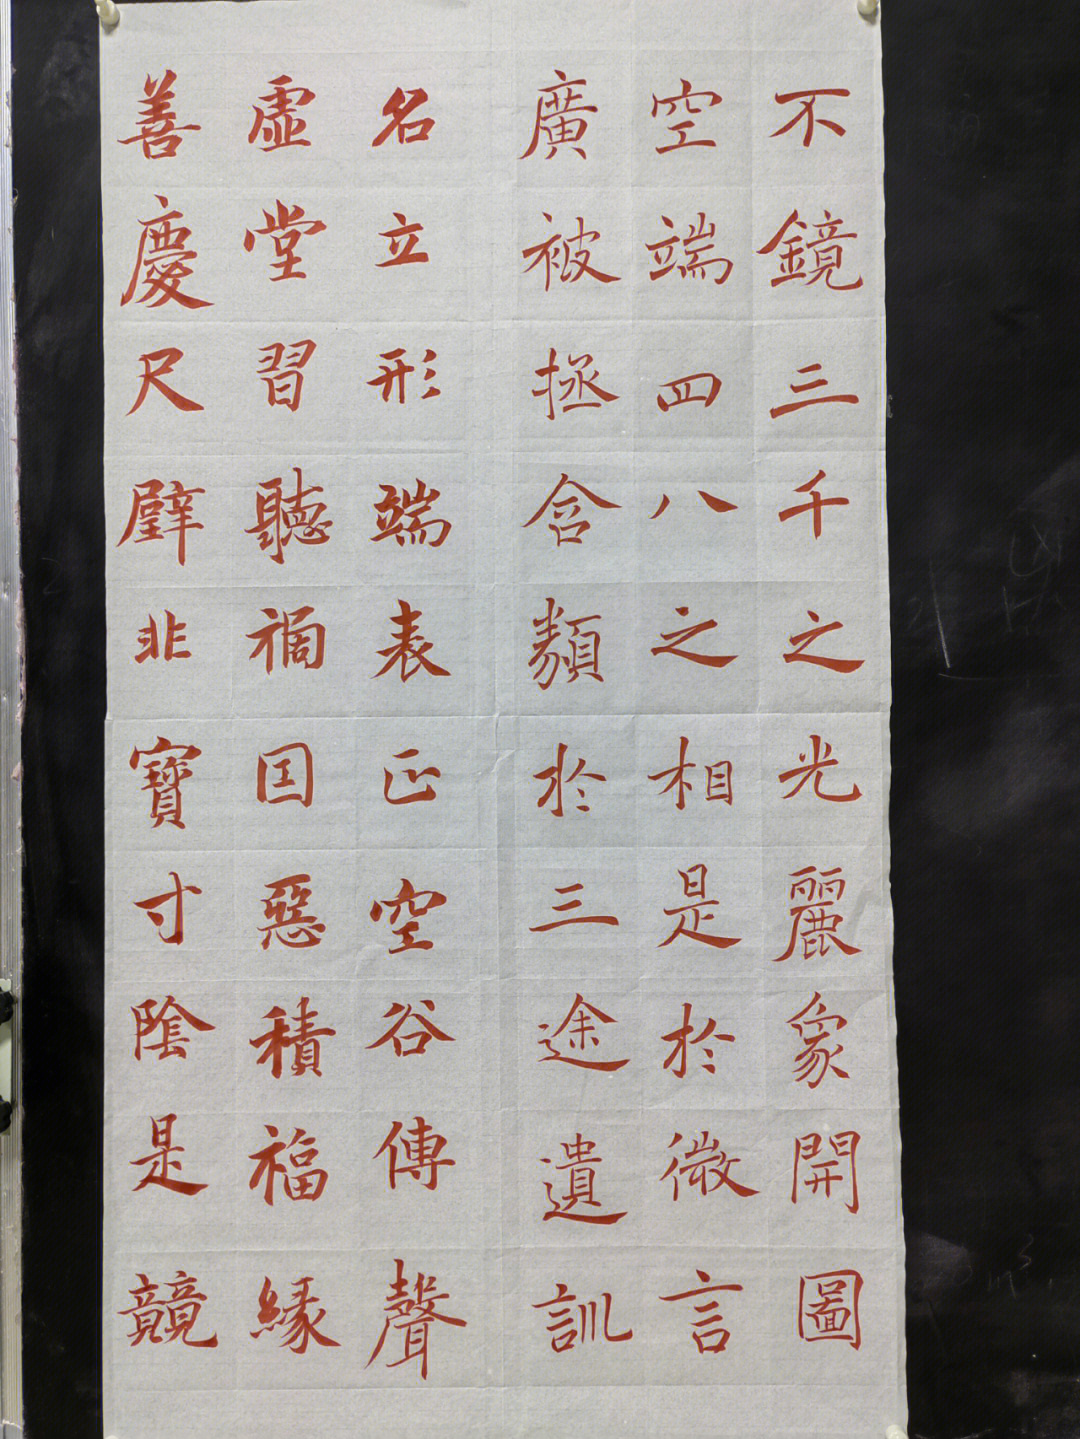 不鏡三千之光麗象開圖
空端四八之相是於微言
廣被拯含類於三途遺訓
名立形端表正空谷傳聲
虛堂習聽禍因惡積福緣
善慶尺璧非寶寸陰是競